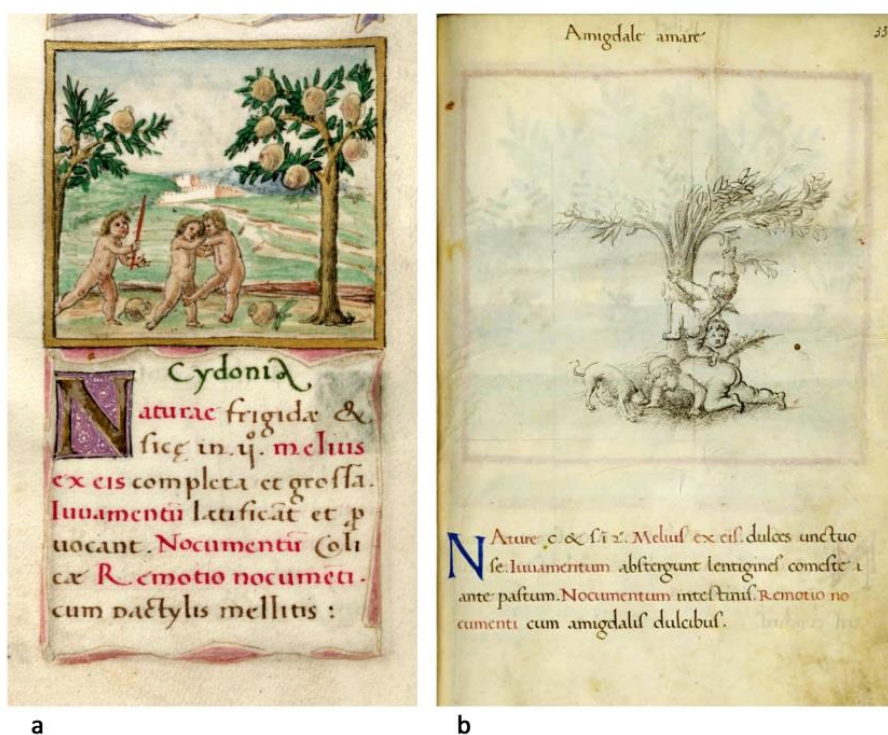 Cydonia
Naturae frigidæ &
sicę in.ijº. melius
ex eis completa et grossa.
Iuuamentū letificāt et ꝓ
uocant. Nocumentū Coli
cæ Remotio nocumēti.
cum dactylis mellitis :
a
Amigdale amare
33
NAture c & s i 2. Melius ex eis. dulces unctuo
se. Iuuamentum abstergunt lentigines comeste
ante pastum. Nocumentum intestinis. Remotio no
cumenti cum amigdalis dulcibus.
b